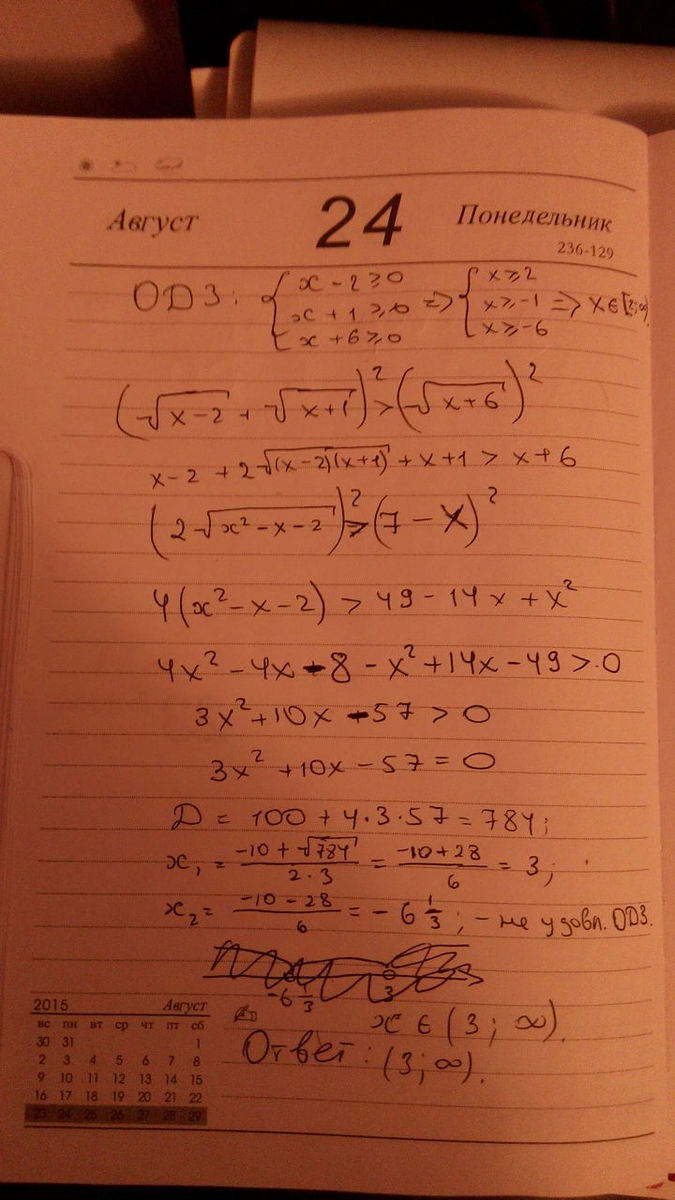 Август 24 Понедельник
236-129
ОДЗ: { x - 2 ≥ 0 => { x ≥ 2 => x ∈ [2; ∞).
x + 1 ≥ 0 x ≥ -1
x + 6 ≥ 0 x ≥ -6
(√(x-2) + √(x+1))² > (√(x+6))²
x - 2 + 2√((x-2)(x+1)) + x + 1 > x + 6
(2√(x² - x - 2))² > (7 - x)²
4(x² - x - 2) > 49 - 14x + x²
4x² - 4x - 8 - x² + 14x - 49 > 0
3x² + 10x - 57 > 0
3x² + 10x - 57 = 0
D = 100 + 4·3·57 = 784;
x₁ = (-10 + √784)/(2·3) = (-10 + 28)/6 = 3;
x₂ = (-10 - 28)/6 = -6 1/3; - не удовл. ОДЗ.
-6 1/3 3
x ∈ (3; ∞).
Ответ: (3; ∞).
2015 Август
вс пн вт ср чт пт сб
30 31 1
2 3 4 5 6 7 8
9 10 11 12 13 14 15
16 17 18 19 20 21 22
23 24 25 26 27 28 29